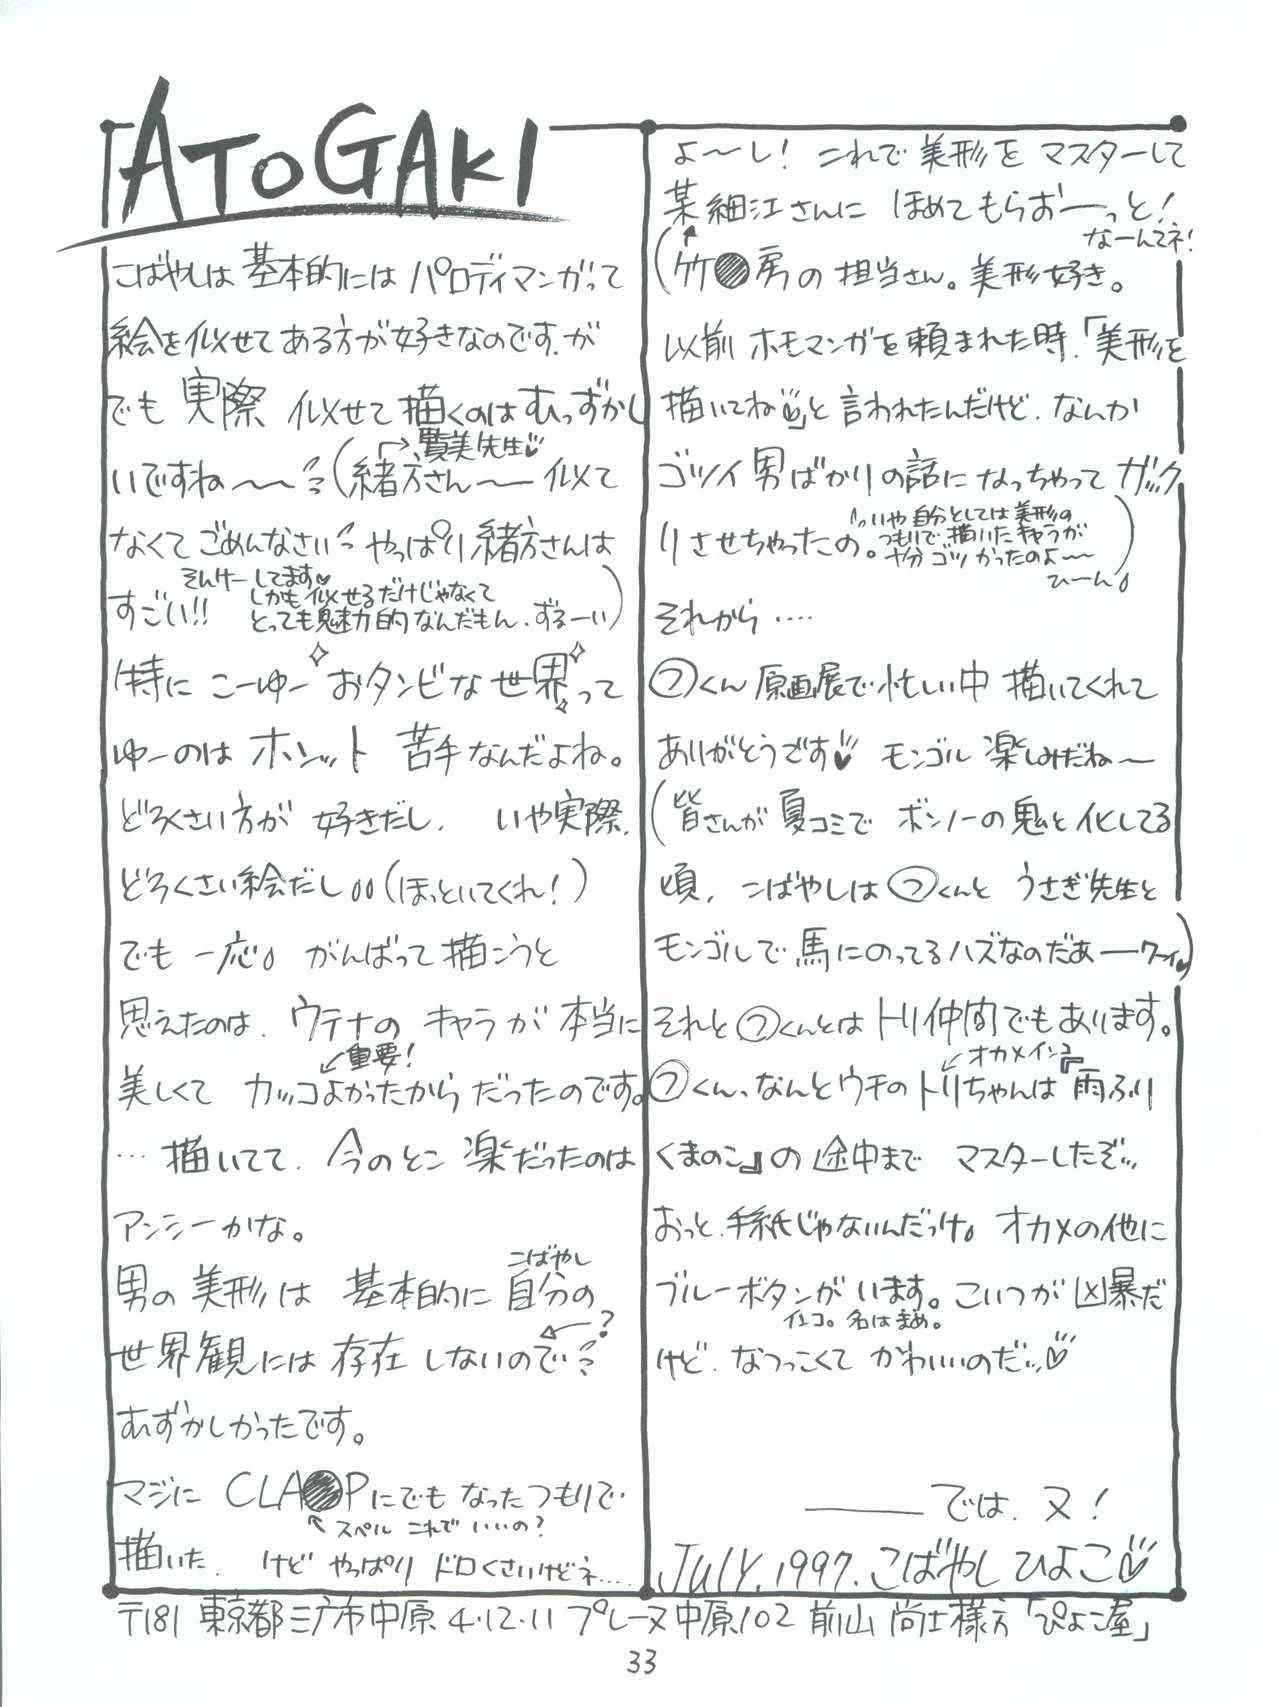 ATOGAKI
こばやしは 基本的には パロディマンガって
絵を似せてある方が好きなのです。が
でも 実際 似せて描くのは むっずかし
いですね〜〜
(緒方さん〜〜 似て
→賢美先生♡
なくてごめんなさい やっぱり緒方さんは
すごい!!
そんけーしてます♡
しかも似せるだけじゃなくて
とっても魅力的なんだもん、ずるーい)
特に こーゆー おタンビな世界って
ゆーのは ホンット 苦手なんだよね。
どろくさい方が 好きだし、 いや実際、
どろくさい絵だし(ほっといてくれ!)
でも 一応 がんばって描こうと
思えたのは、ウテナの キャラが 本当に
美しくて カッコよかったから だったのです。
↙重要!
…描いてて、今のとこ 楽だったのは
アンシーかな。
男の美形は 基本的に 自分の
こばやし
世界観には 存在 しないので
←?
むずかしかったです。
マジに CLA●Pにでも なったつもりで
↖スペル これで いいの?
描いた、 けど やっぱり ドロくさいけどネ……
よ〜し! これで 美形を マスターして
某細江さんに ほめてもらおーっと!
なーんてネ!
(竹●房の 担当さん。美形好き。
以前 ホモマンガを頼まれた時、「美形を
描いてね♡」と 言われたんだけど、なんか
ゴツイ男ばかりの話に なっちゃって ガック
リさせちゃったの。
いや自分としては美形の
つもりで描いたキャラが
ゴツかったのよ〜〜
ひーん)
それから ‥‥
㋡くん 原画展で忙しい中 描いてくれて
ありがとうです♡ モンゴル 楽しみだね〜
(皆さんが 夏コミで ボンノーの鬼と化してる
頃、こばやしは ㋡くんと うさぎ先生と
モンゴルで 馬にのってるハズなのだぁ――ワーイ♡)
それと ㋡くんとは トリ仲間でもあります。
㋡くん、なんとウチの トリちゃんは『雨ふり
↙オカメインコ
くまのこ』の 途中まで マスターしたぞ
おっと、手紙じゃないんだっけ オカメの他に
ブルーボタンが います。こいつが 凶暴だ
インコ。名はまめ。
けど、なつっこくて かわいいのだ♡
―――では、又!
JULY.1997.こばやしひよこ♡
〒181 東京都三广市中原4-12-11 プレーヌ中原102 前山尚士様方「ぴよこ屋」
33